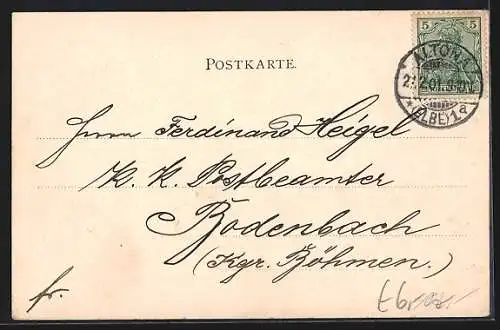 5 5
POSTKARTE.
ALTONA
9-10V
* (ELBE) 1a
Herrn Ferdinand Heigel
K. K. Postbeamter
Bodenbach
(Kgr. Böhmen.)
fr.